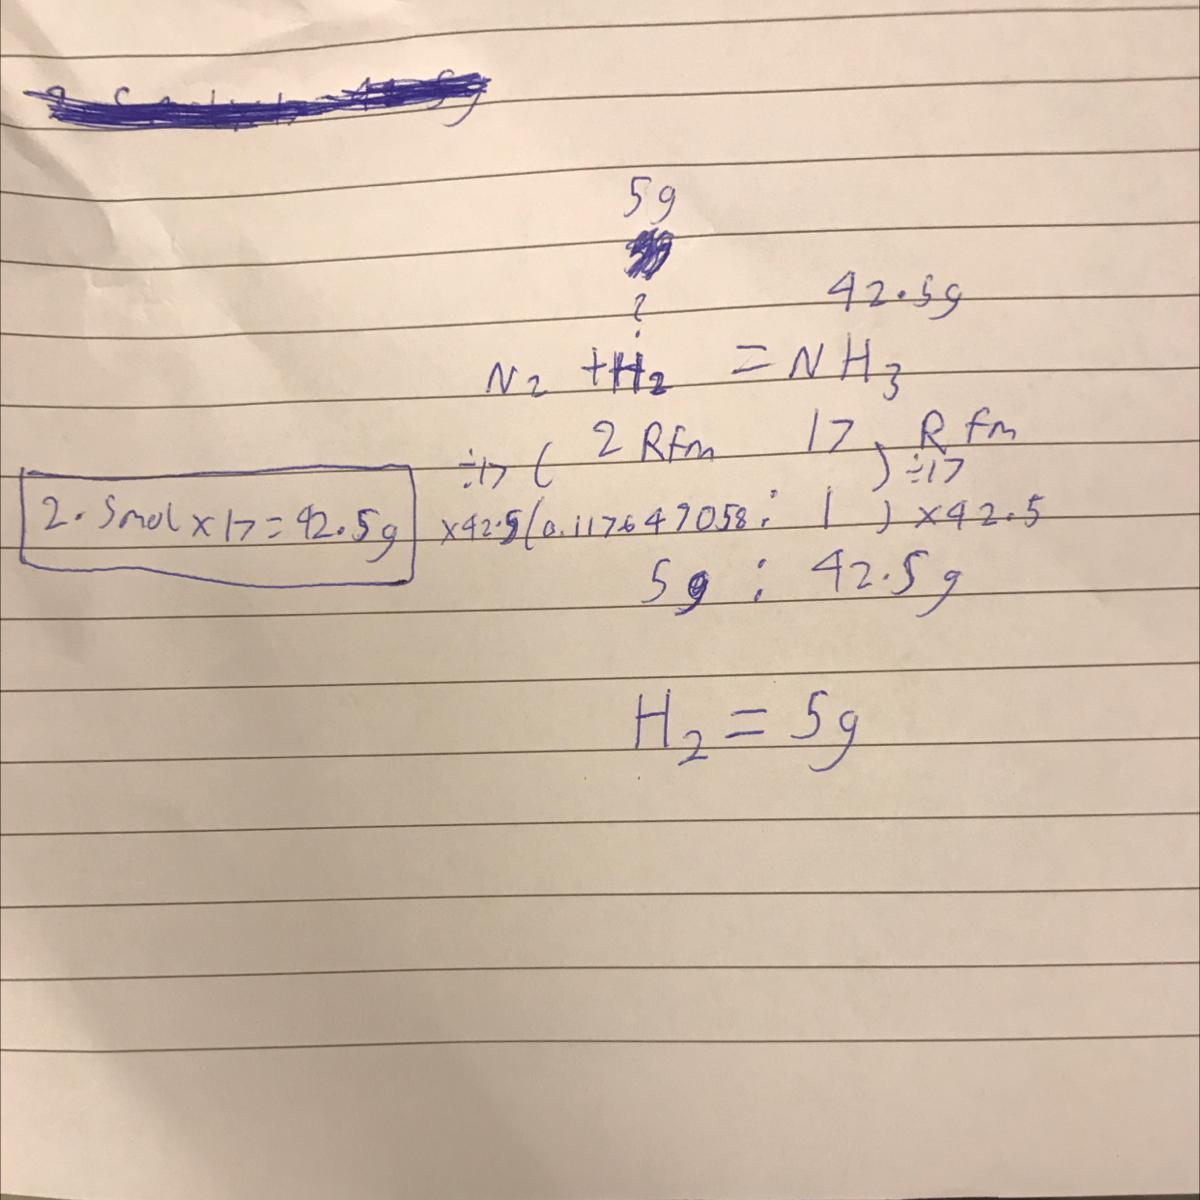 5g
?
42.5g
N2 +H2 = NH3
2 Rfm 17 Rfm
÷17 ( ) ÷17
2.5mol x 17 = 42.5g
x42.5 (0.117647058 : 1 ) x42.5
5g : 42.5g
H2 = 5g